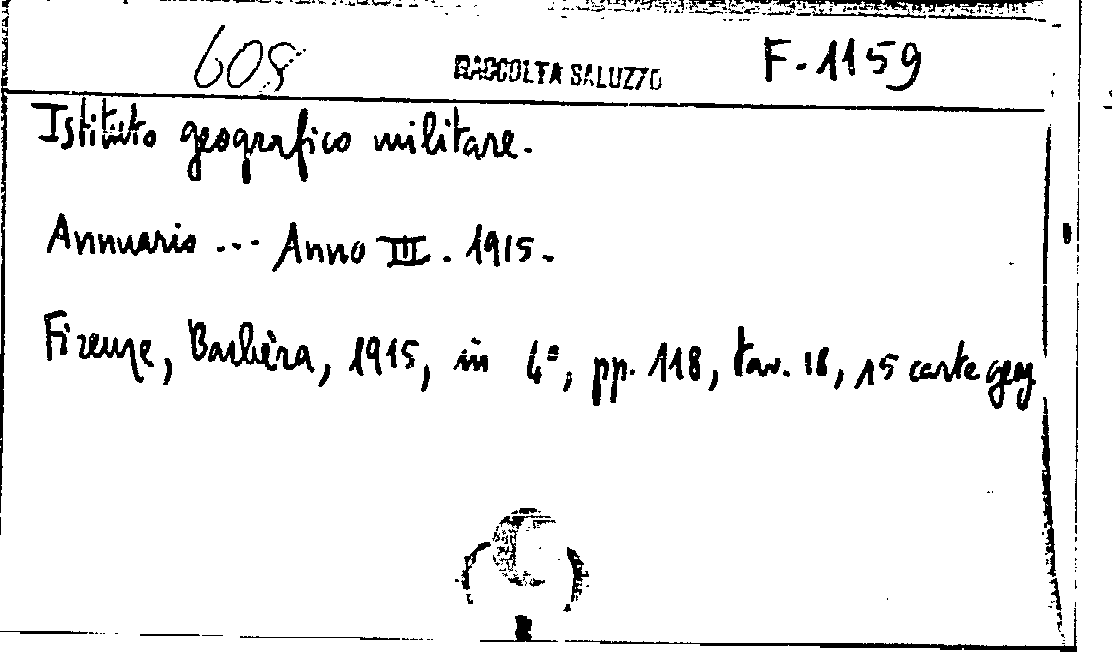 608 RACCOLTA SALUZZO F-1159
Istituto geografico militare.
Annuario ... Anno III. 1915.
Firenze, Barbèra, 1915, in 4°, pp. 118, tav. 18, 15 carte geog